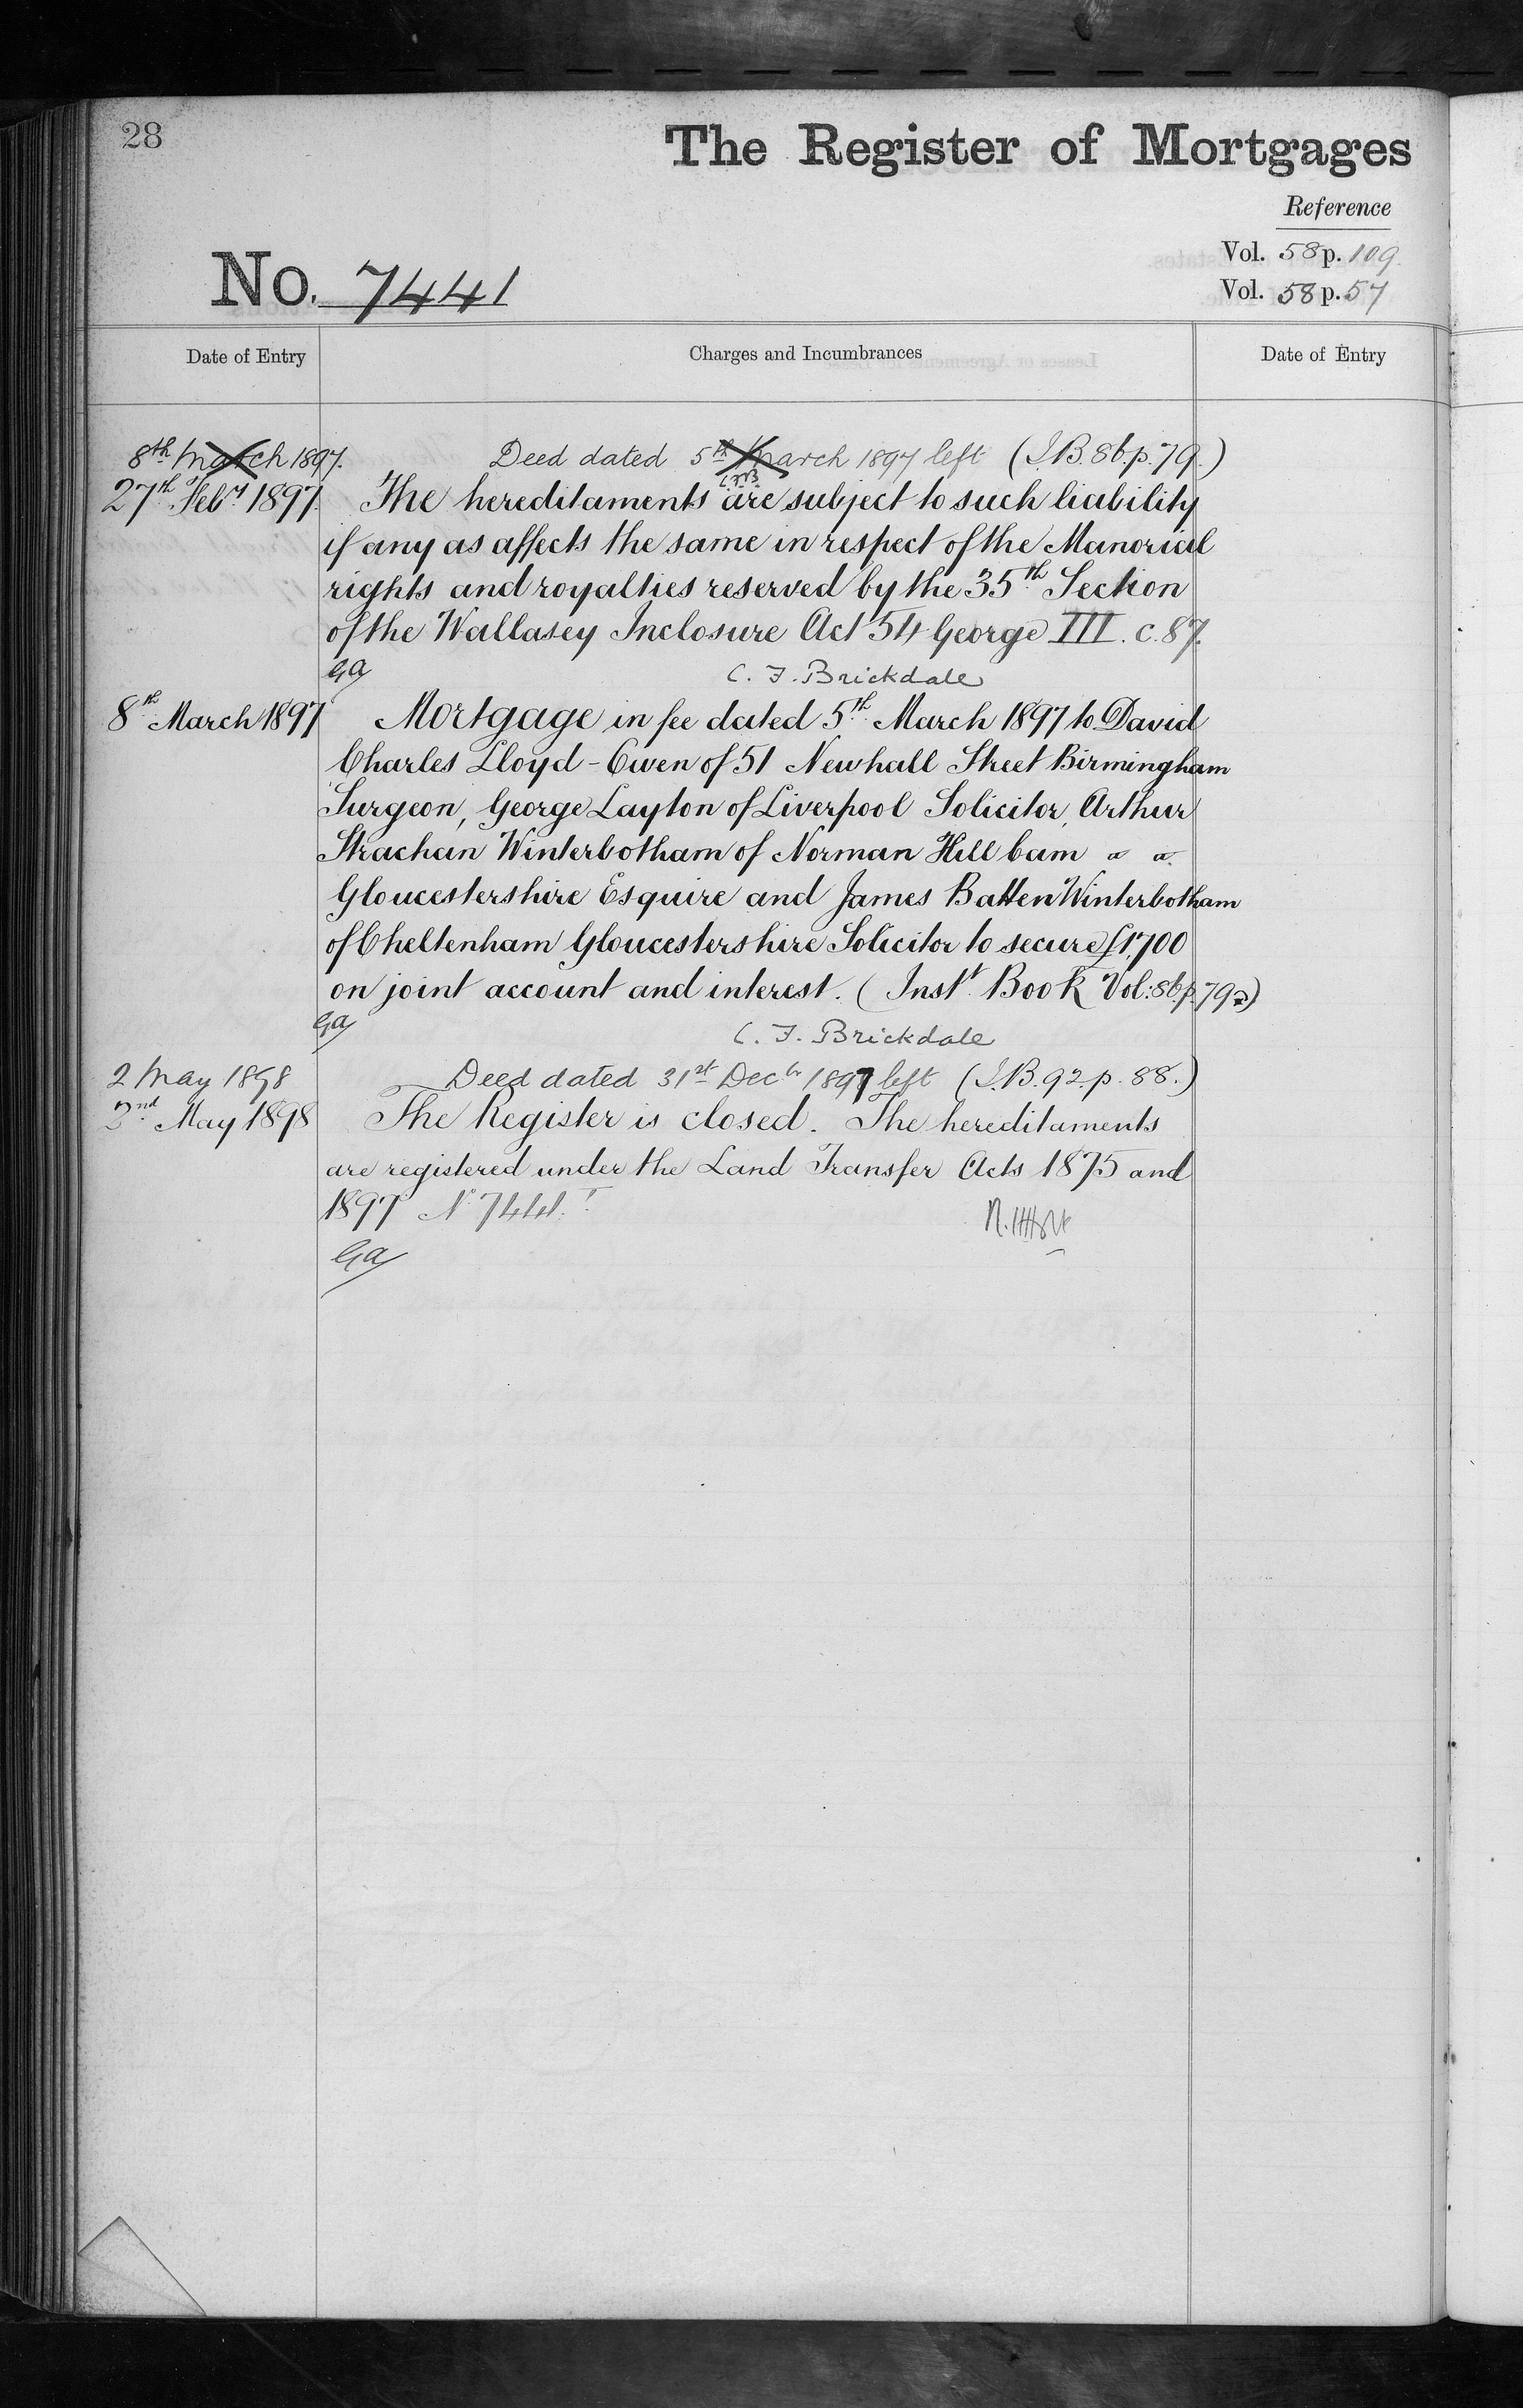 28
The Register of Mortgages
Reference
Vol. 58 p. 109.
No. 7441
Vol. 58 p. 57
Date of Entry Charges and Incumbrances Date of Entry
8th March 1897. Deed dated 5th March 1897 left (I.B. 86. p. 79.)
C.F.B.
27th Feby 1897. The hereditaments are subject to such liability
if any as affects the same in respect of the Manorial
rights and royalties reserved by the 35th Section
of the Wallasey Inclosure Act 54 George III. c. 87.
Ga C. F. Brickdale
8th March 1897 Mortgage in fee dated 5th March 1897 to David
Charles Lloyd-Owen of 51 Newhall Street Birmingham
Surgeon, George Layton of Liverpool Solicitor, Arthur
Strachan Winterbotham of Norman Hill Cam
Gloucestershire Esquire and James Batten Winterbotham
of Cheltenham Gloucestershire Solicitor to secure £1,700
on joint account and interest. (Inst. Book Vol: 86. p. 79)
Ga C. F. Brickdale
2 May 1898 Deed dated 31st Decr 1897 left (I.B. 92. p. 88.)
2nd May 1898 The Register is closed. The hereditaments
are registered under the Land Transfer Acts 1875 and
1897 No 7441.
Ga